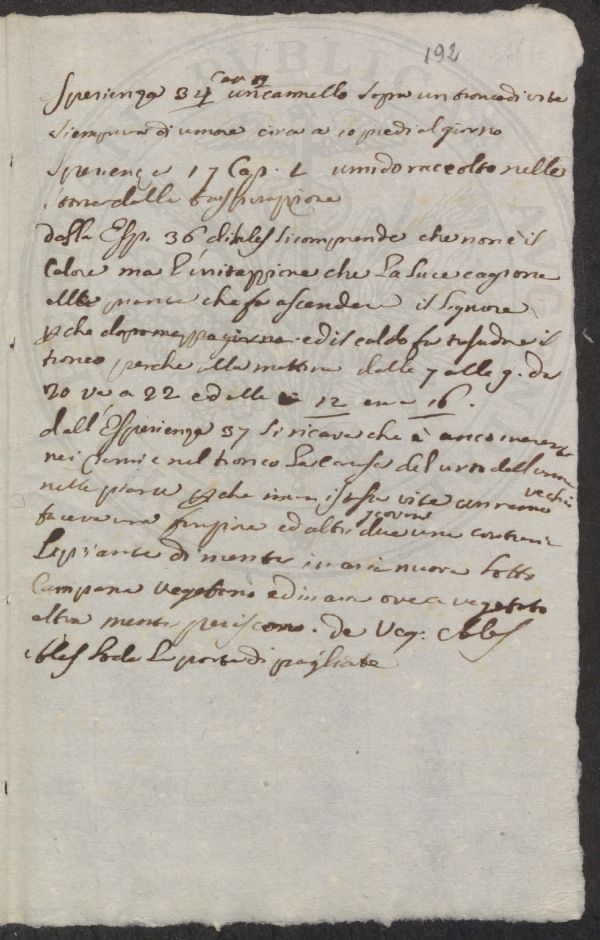 192
Cap. 
Sperienza 34 un cannello sopra un tronco di vite
si empiva di umore circa a 10 piedi al giorno
Sperienza 17 Cap. 1 umido raccolto nelle
 della traspirazione
dalla Esp. 36 di hales si comprende che non è il
Calore ma l'irritazzione che La Luce cagiona
alle piante che fa ascendere il
che dopo mezzo giorno ed il caldo fa il
tronco perche alla mattina dalle 7 alle 9. da
20 va a 22 e dalle 12 era a 16.
dall'Esperienza 37 si ricava che è anco 
nei rami e nel tronco La Causa del urto dell'umore
nelle piante che in una istessa vite un ramo vechio
faceva una funzione ed altri due giovani una contraria
Le piante di menta in aria nuova sotto
Campana vegetano ed in aria ove a vegetato
altra menta periscono. de Veg. Ables
Ables loda La porta di pagliate